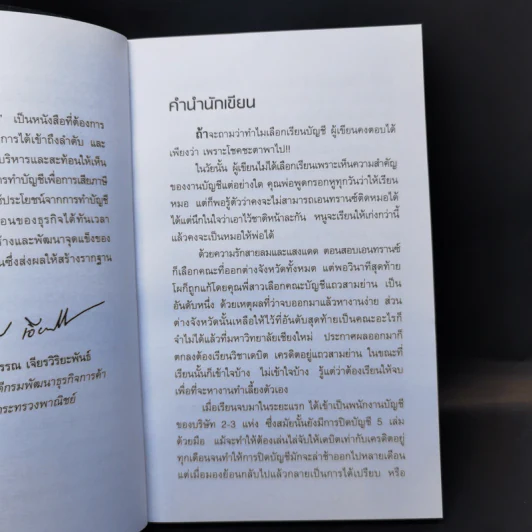 ” เป็นหนังสือที่ต้องการ
การได้เข้าถึงลำดับ และ
บริหารและสะท้อนให้เห็น
การทำบัญชีเพื่อการเสียภาษี
ช้ประโยชน์จากการทำบัญชี
อนของธุรกิจได้ทันเวลา
ร้างและพัฒนาจุดแข็งของ
นซึ่งส่งผลให้สร้างรากฐาน
วรรณ เจียรวิริยะพันธ์
ดีกรมพัฒนาธุรกิจการค้า
กระทรวงพาณิชย์
คำนำนักเขียน
ถ้าจะถามว่าทำไมเลือกเรียนบัญชี ผู้เขียนคงตอบได้
เพียงว่า เพราะโชคชะตาพาไป!!
ในวัยนั้น ผู้เขียนไม่ได้เลือกเรียนเพราะเห็นความสำคัญ
ของงานบัญชีแต่อย่างใด คุณพ่อพูดกรอกหูทุกวันว่าให้เรียน
หมอ แต่ก็พอรู้ตัวว่าคงจะไม่สามารถเอนทรานซ์ติดหมอได้
ได้แต่นึกในใจว่าเอาไว้ชาติหน้าละกัน หนูจะเรียนให้เก่งกว่านี้
แล้วคงจะเป็นหมอให้พ่อได้
ด้วยความรักสายลมและแสงแดด ตอนสอบเอนทรานซ์
ก็เลือกคณะที่ออกต่างจังหวัดทั้งหมด แต่พอวินาทีสุดท้าย
โผก็ถูกแก้โดยคุณพี่สาวเลือกคณะบัญชีแถวสามย่าน เป็น
อันดับหนึ่ง ด้วยเหตุผลที่ว่าจบออกมาแล้วหางานง่าย ส่วน
ต่างจังหวัดนั้นเหลือให้ไว้ที่อันดับสุดท้ายเป็นคณะอะไรก็
จำไม่ได้แล้วที่มหาวิทยาลัยเชียงใหม่ ประกาศผลออกมาก็
ตกลงต้องเรียนวิชาเดบิต เครดิตอยู่แถวสามย่าน ในขณะที่
เรียนนั้นก็เข้าใจบ้าง ไม่เข้าใจบ้าง รู้แต่ว่าต้องเรียนให้จบ
เพื่อที่จะหางานทำเลี้ยงตัวเอง
เมื่อเรียนจบมาในระยะแรก ได้เข้าเป็นพนักงานบัญชี
ของบริษัท 2-3 แห่ง ซึ่งสมัยนั้นยังมีการปิดบัญชี 5 เล่ม
ด้วยมือ แม้จะทำให้ต้องเล่นไล่จับให้เดบิตเท่ากับเครดิตอยู่
ทุกเดือนจนทำให้การปิดบัญชีมักจะล่าช้าออกไปหลายเดือน
แต่เมื่อมองย้อนกลับไปแล้วกลายเป็นการได้เปรียบ หรือ